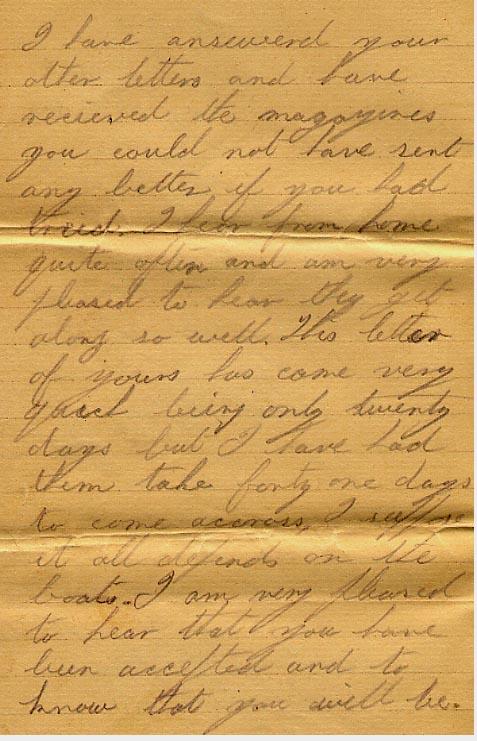 I have ansewerd your
other letters and have
recieved the magazines
you could not have sent
any better if you had
tried. I hear from home
quite often and am very
pleased to hear they get
along so well. This letter
of yours has come very
quick being only twenty
days but I have had
them take forty one days
to come accross, I suppose
it all depends on the
boats. I am very pleased
to hear that you have
been accepted and to
know that you will be.